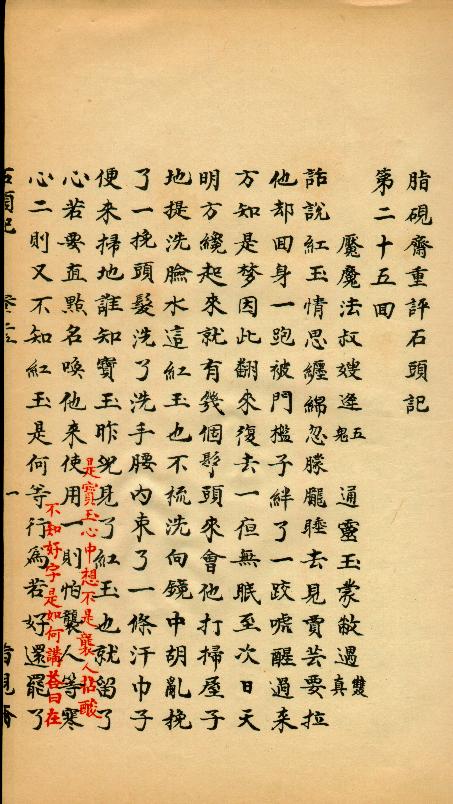 脂硯齋重評石頭記
第二十五回
魘魔法叔嫂逢五鬼 通靈玉蒙敝遇雙真
話說紅玉情思纏綿忽朦朧睡去見賈芸要拉
他却回身一跑被門檻子絆了一跤唬醒過来
方知是梦因此翻來復去一夜無眠至次日天
明方纔起來就有幾個丫頭來會他打掃屋子
地提洗臉水這紅玉也不梳洗向鏡中胡亂挽
了一挽頭髮洗了洗手腰内束了一條汗巾子
便來掃地誰知寶玉昨兒見了紅玉也就留了
心若要直點名喚他來使用一則怕襲人等寒
是寳玉心中想不是襲人拈酸
心二則又不知紅玉是何等行為若好還罷了
不知好字是如何講荅曰在
石頭記 一